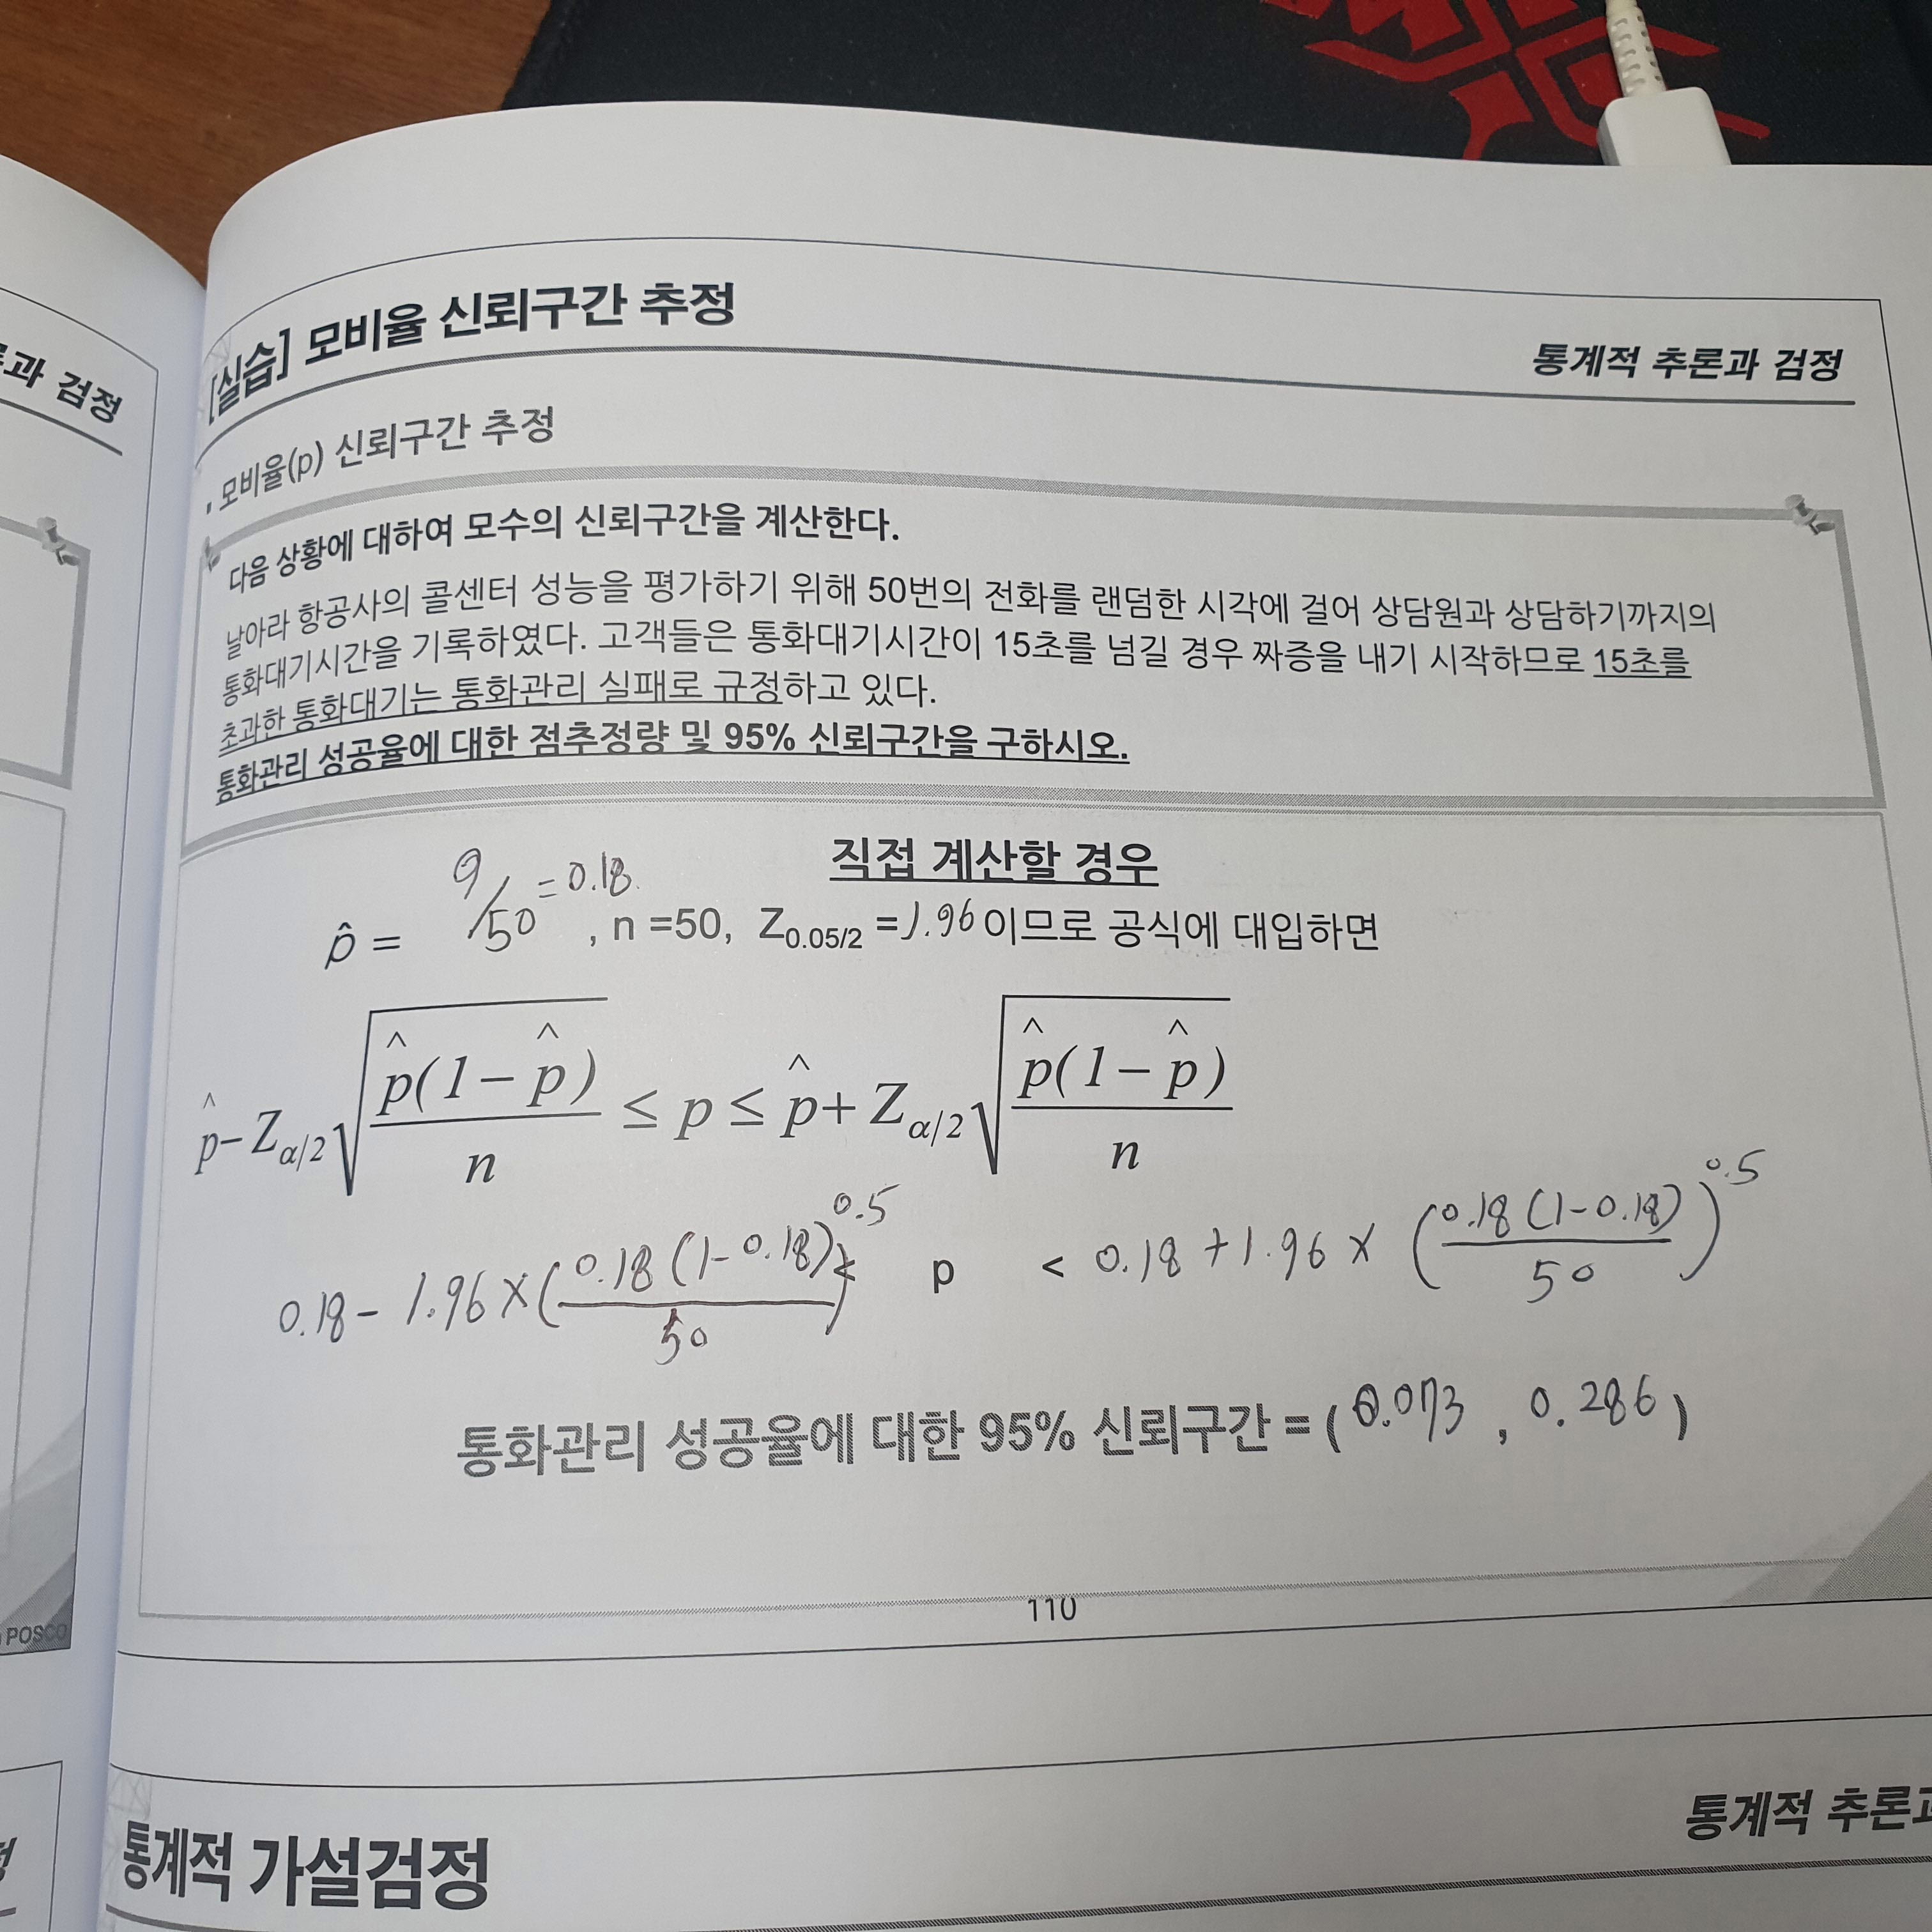 [실습] 모비율 신뢰구간 추정
통계적 추론과 검정
과 검정
모비율(p) 신뢰구간 추정
다음 상황에 대하여 모수의 신뢰구간을 계산한다.
날아라 항공사의 콜센터 성능을 평가하기 위해 50번의 전화를 랜덤한 시각에 걸어 상담원과 상담하기까지의
통화대기시간을 기록하였다. 고객들은 통화대기시간이 15초를 넘길 경우 짜증을 내기 시작하므로 15초를
초과한 통화대기는 통화관리 실패로 규정하고 있다.
통화관리 성공율에 대한 점추정량 및 95% 신뢰구간을 구하시오.
직접 계산할 경우
p̂ = 9/50 = 0.18 , n =50, Z0.05/2 =1.96이므로 공식에 대입하면
p̂ − Zα/2 √(p̂(1−p̂)/n) ≤ p ≤ p̂ + Zα/2 √(p̂(1−p̂)/n)
0.18 − 1.96 × (0.18(1-0.18)/50)^0.5 < p < 0.18 + 1.96 × (0.18(1-0.18)/50)^0.5
통화관리 성공율에 대한 95% 신뢰구간 = ( 0.073 , 0.286 )
110
POSCO
통계적 가설검정
통계적 추론과